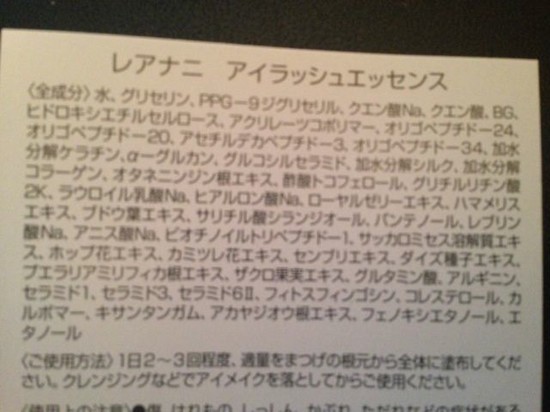 レアナニ　アイラッシュエッセンス
〈全成分〉水、グリセリン、PPG－9ジグリセリル、クエン酸Na、クエン酸、BG、
ヒドロキシエチルセルロース、アクリレーツコポリマー、オリゴペプチド－24、
オリゴペプチド－20、アセチルデカペプチド－3、オリゴペプチド－34、加水
分解ケラチン、α－グルカン、グルコシルセラミド、加水分解シルク、加水分解
コラーゲン、オタネニンジン根エキス、酢酸トコフェロール、グリチルリチン酸
2K、ラウロイル乳酸Na、ヒアルロン酸Na、ローヤルゼリーエキス、ハマメリス
エキス、ブドウ葉エキス、サリチル酸シランジオール、パンテノール、レブリン
酸Na、アニス酸Na、ビオチノイルトリペプチド－1、サッカロミセス溶解質エキ
ス、ホップ花エキス、カミツレ花エキス、センブリエキス、ダイズ種子エキス、
プエラリアミリフィカ根エキス、ザクロ果実エキス、グルタミン酸、アルギニン、
セラミド1、セラミド3、セラミド6Ⅱ、フィトスフィンゴシン、コレステロール、カ
ルボマー、キサンタンガム、アカヤジオウ根エキス、フェノキシエタノール、エ
タノール
〈ご使用方法〉1日2～3回程度、適量をまつげの根元から全体に塗布してくだ
さい。クレンジングなどでアイメイクを落としてからご使用ください。
〈使用上の注意〉●傷、はれもの、しっしん、かぶれ、ただれなどの症状がある